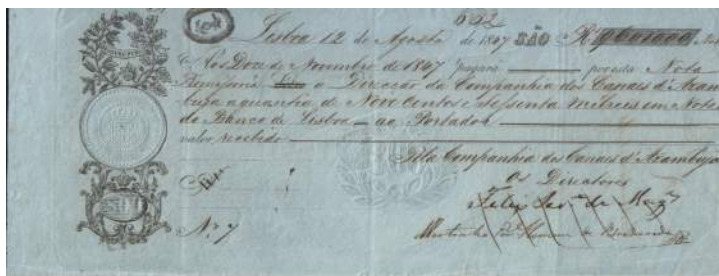 652
Lisboa 12 de Agosto de 1847 SÃO Rs 960$000
Aos Doze de Novembro de 1847 pagará por esta Nota
Promissoria a Direcção da Companhia dos Canaes d'Azam
buja a quantia de Nove Centos e Sessenta mil reis em Notas
do Banco de Lisboa ao Portador
valor recebido
Pela Companhia dos Canaes d'Azambuja
Os Directores
Nº 7
Felix de